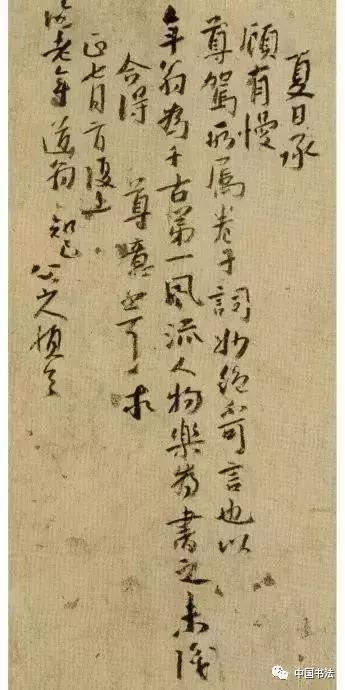 夏日承
顧有慢
尊駕所屬卷子詞妙絕可言也以
年翁為千古第一風流人物樂為書之未識
合得 尊意 求
正七月 復上
老年道翁 知己
中国书法